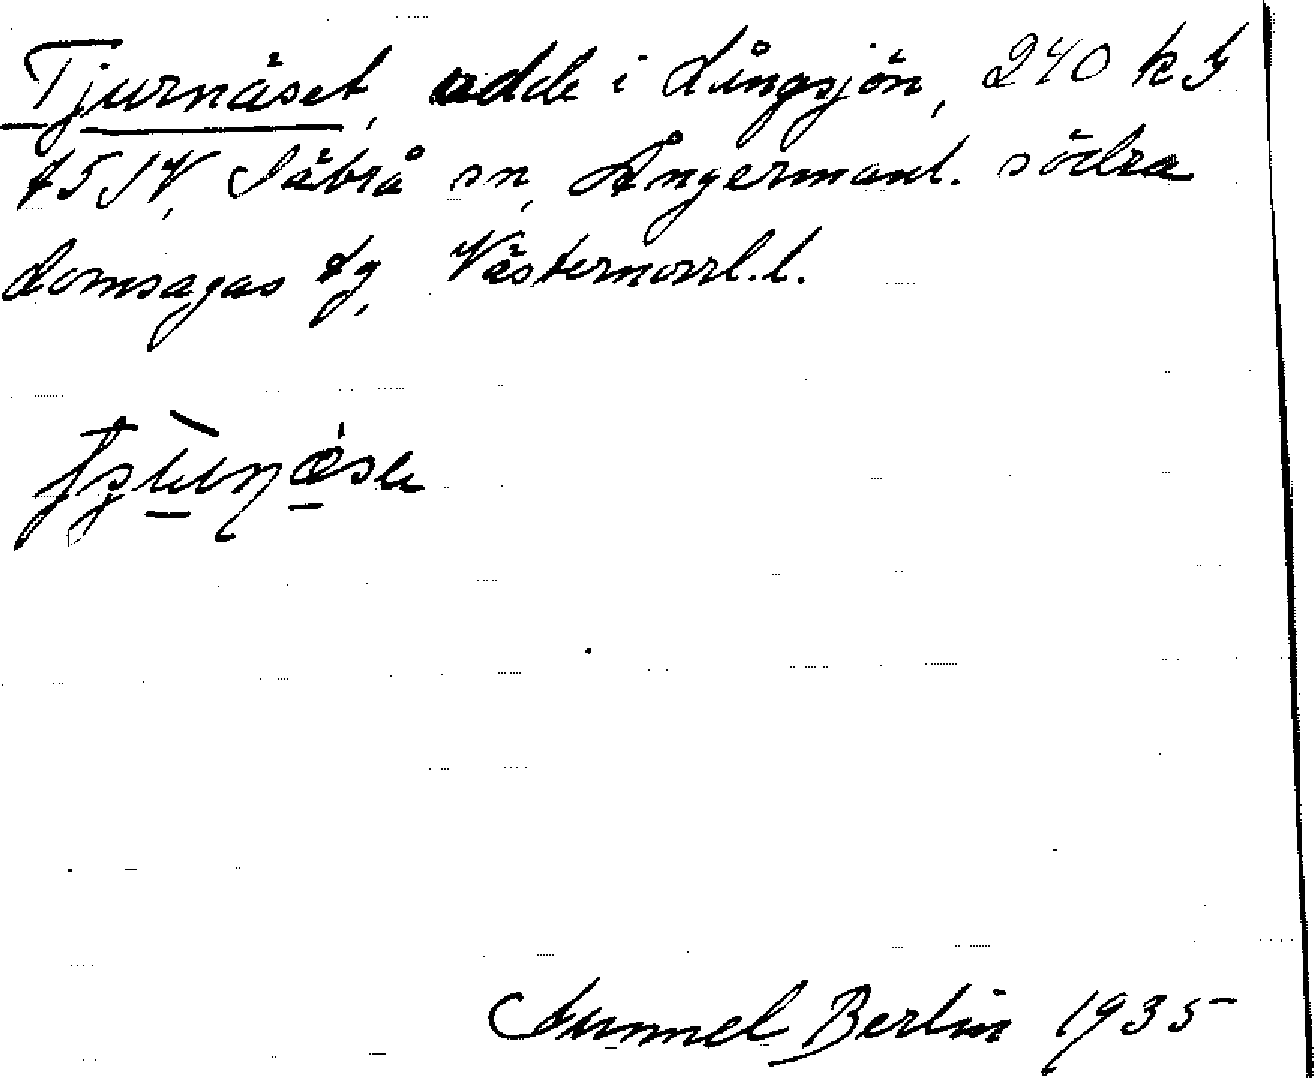 Tjurnäset, udde i Långsjön, 240 k G
t 5 SV, Säbrå sn, Ångermanl. södra
domsagas tg, Västernorrl. l.
Gunnel Berlin 1935